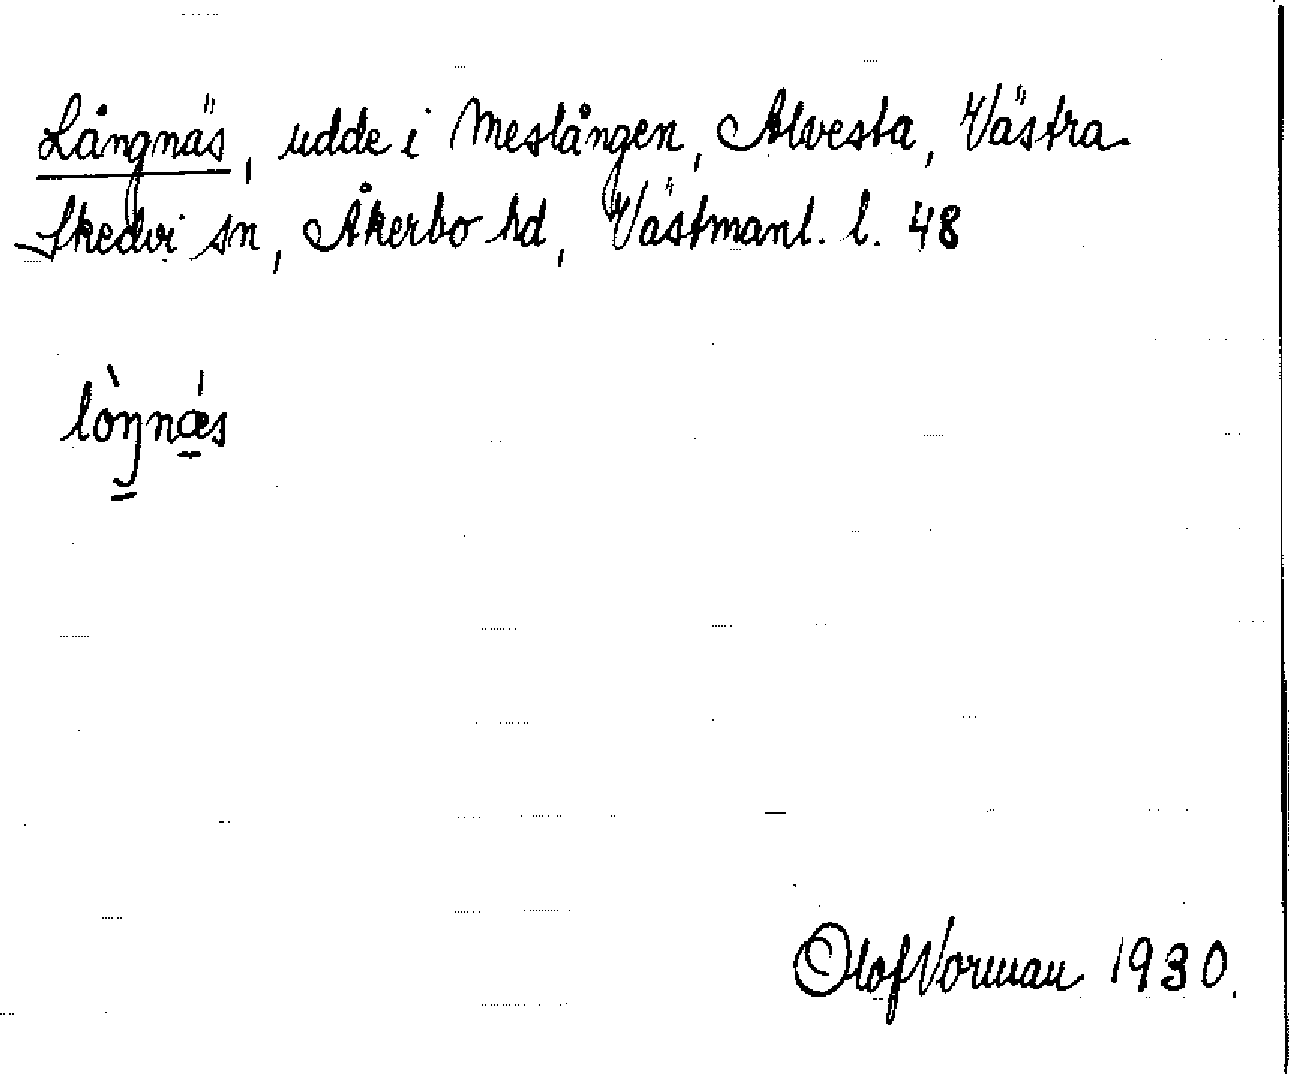 Långnäs, udde i Meslången, Alvesta, Västra
Skedvi sn, Åkerbo hd, Västmanl. l. 48
lòŋnæ̀s
Olof Vorman 1930.